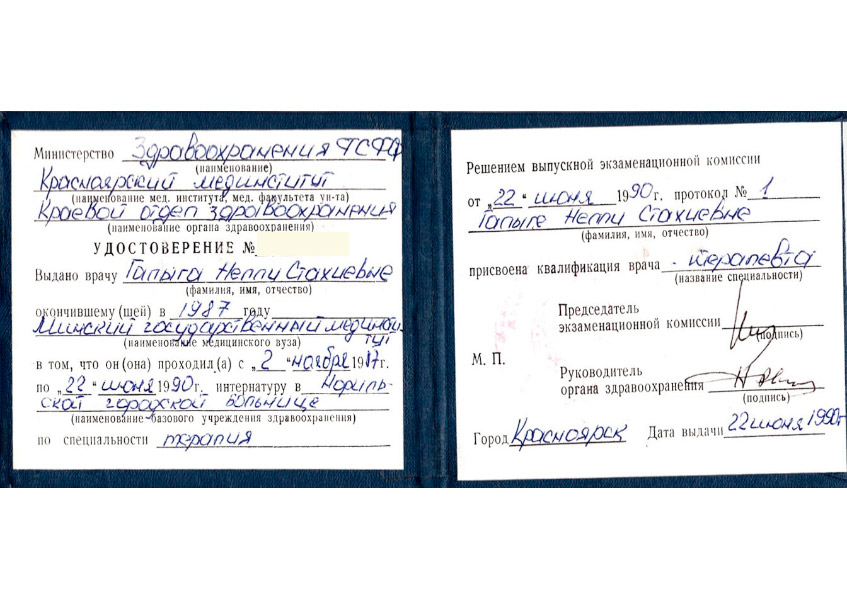 Министерство Здравоохранения РСФСР
(наименование)
Красноярский мединститут
(наименование мед. института, мед. факультета ун-та)
Краевой отдел здравоохранения
(наименование органа здравоохранения)
УДОСТОВЕРЕНИЕ №
Выдано врачу Галыга Нелли Стахиевне
(фамилия, имя, отчество)
окончившему (шей) в 1987 году
Минский государственный мединсти
тут
(наименование медицинского вуза)
в том, что он (она) проходил(а) с „2 “ ноября 1987г.
по „22“ июня 1990г. интернатуру в Нориль-
ской городской больнице
(наименование базового учреждения здравоохранения)
по специальности терапия
Решением выпускной экзаменационной комиссии
от „22“ июня 1990г. протокол № 1
Галыге Нелли Стахиевне
(фамилия, имя, отчество)
присвоена квалификация врача - терапевта
(название специальности)
Председатель
экзаменационной комиссии
(подпись)
М. П.
Руководитель
органа здравоохранения
(подпись)
Город Красноярск Дата выдачи 22 июня 1990г